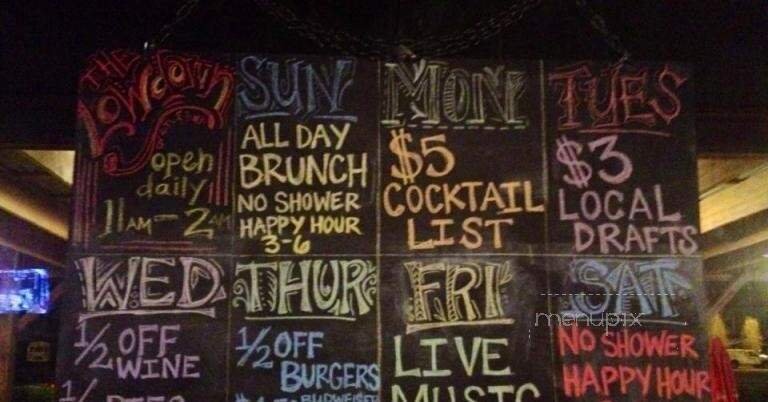 THE
LOWDOWN
open
daily
11AM - 2AM
SUN
ALL DAY
BRUNCH
NO SHOWER
HAPPY HOUR
3-6
MON
$5
COCKTAIL
LIST
TUES
$3
LOCAL
DRAFTS
WED
1/2 OFF
WINE
THUR
1/2 OFF
BURGERS
BUDWEISER
FRI
LIVE
MUSIC
SAT
NO SHOWER
HAPPY HOUR
menupix